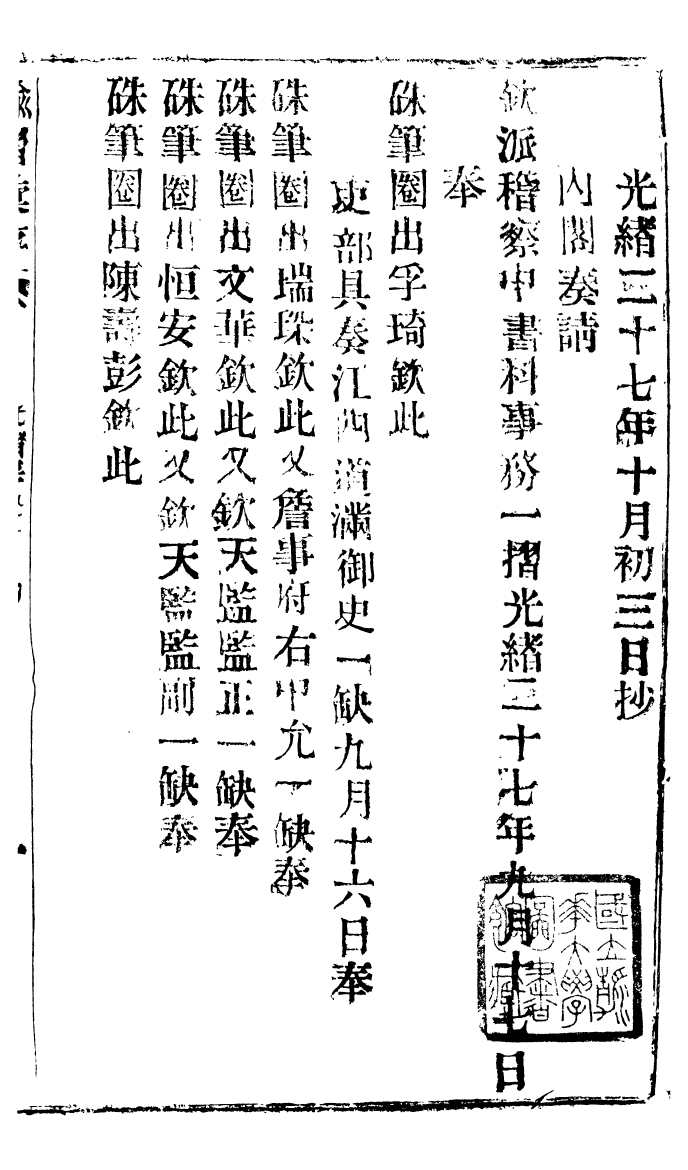 光緒二十七年十月初三日抄
內閣奏請
欽派稽察中書科事務一摺光緒二十七年九月十七日
奉
硃筆圈出孚琦欽此
吏部具奏江西道滿御史一缺九月十六日奉
硃筆圈出瑞琛欽此又詹事府右中允一缺奉
硃筆圈出文華欽此又欽天監監正一缺奉
硃筆圈出恒安欽此又欽天監監副一缺奉
硃筆圈出陳壽彭欽此
諭摺彙存
國立清
華大學
圖書
館藏